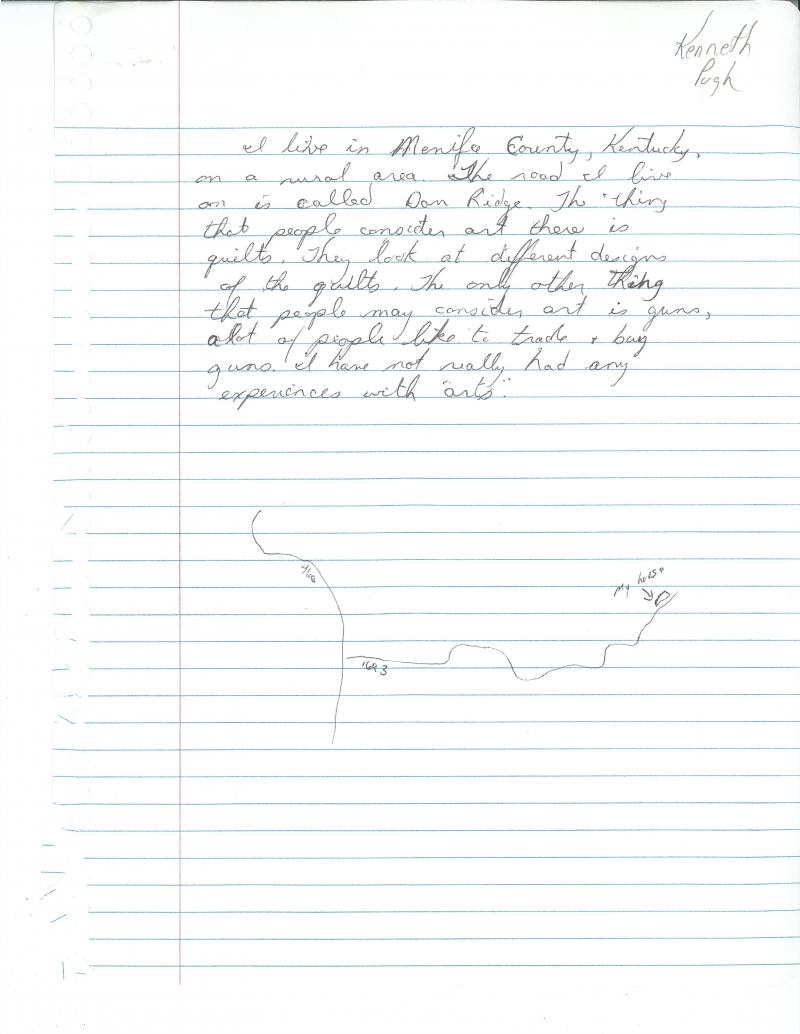 Kenneth
Pugh
I live in Menifee County, Kentucky,
on a rural area. The road I live
on is called Dan Ridge. The thing
that people consider art there is
quilts. They look at different designs
of the quilts. The only other thing
that people may consider art is guns,
alot of people like to trade + buy
guns. I have not really had any
experiences with "arts".
460
My house
1693